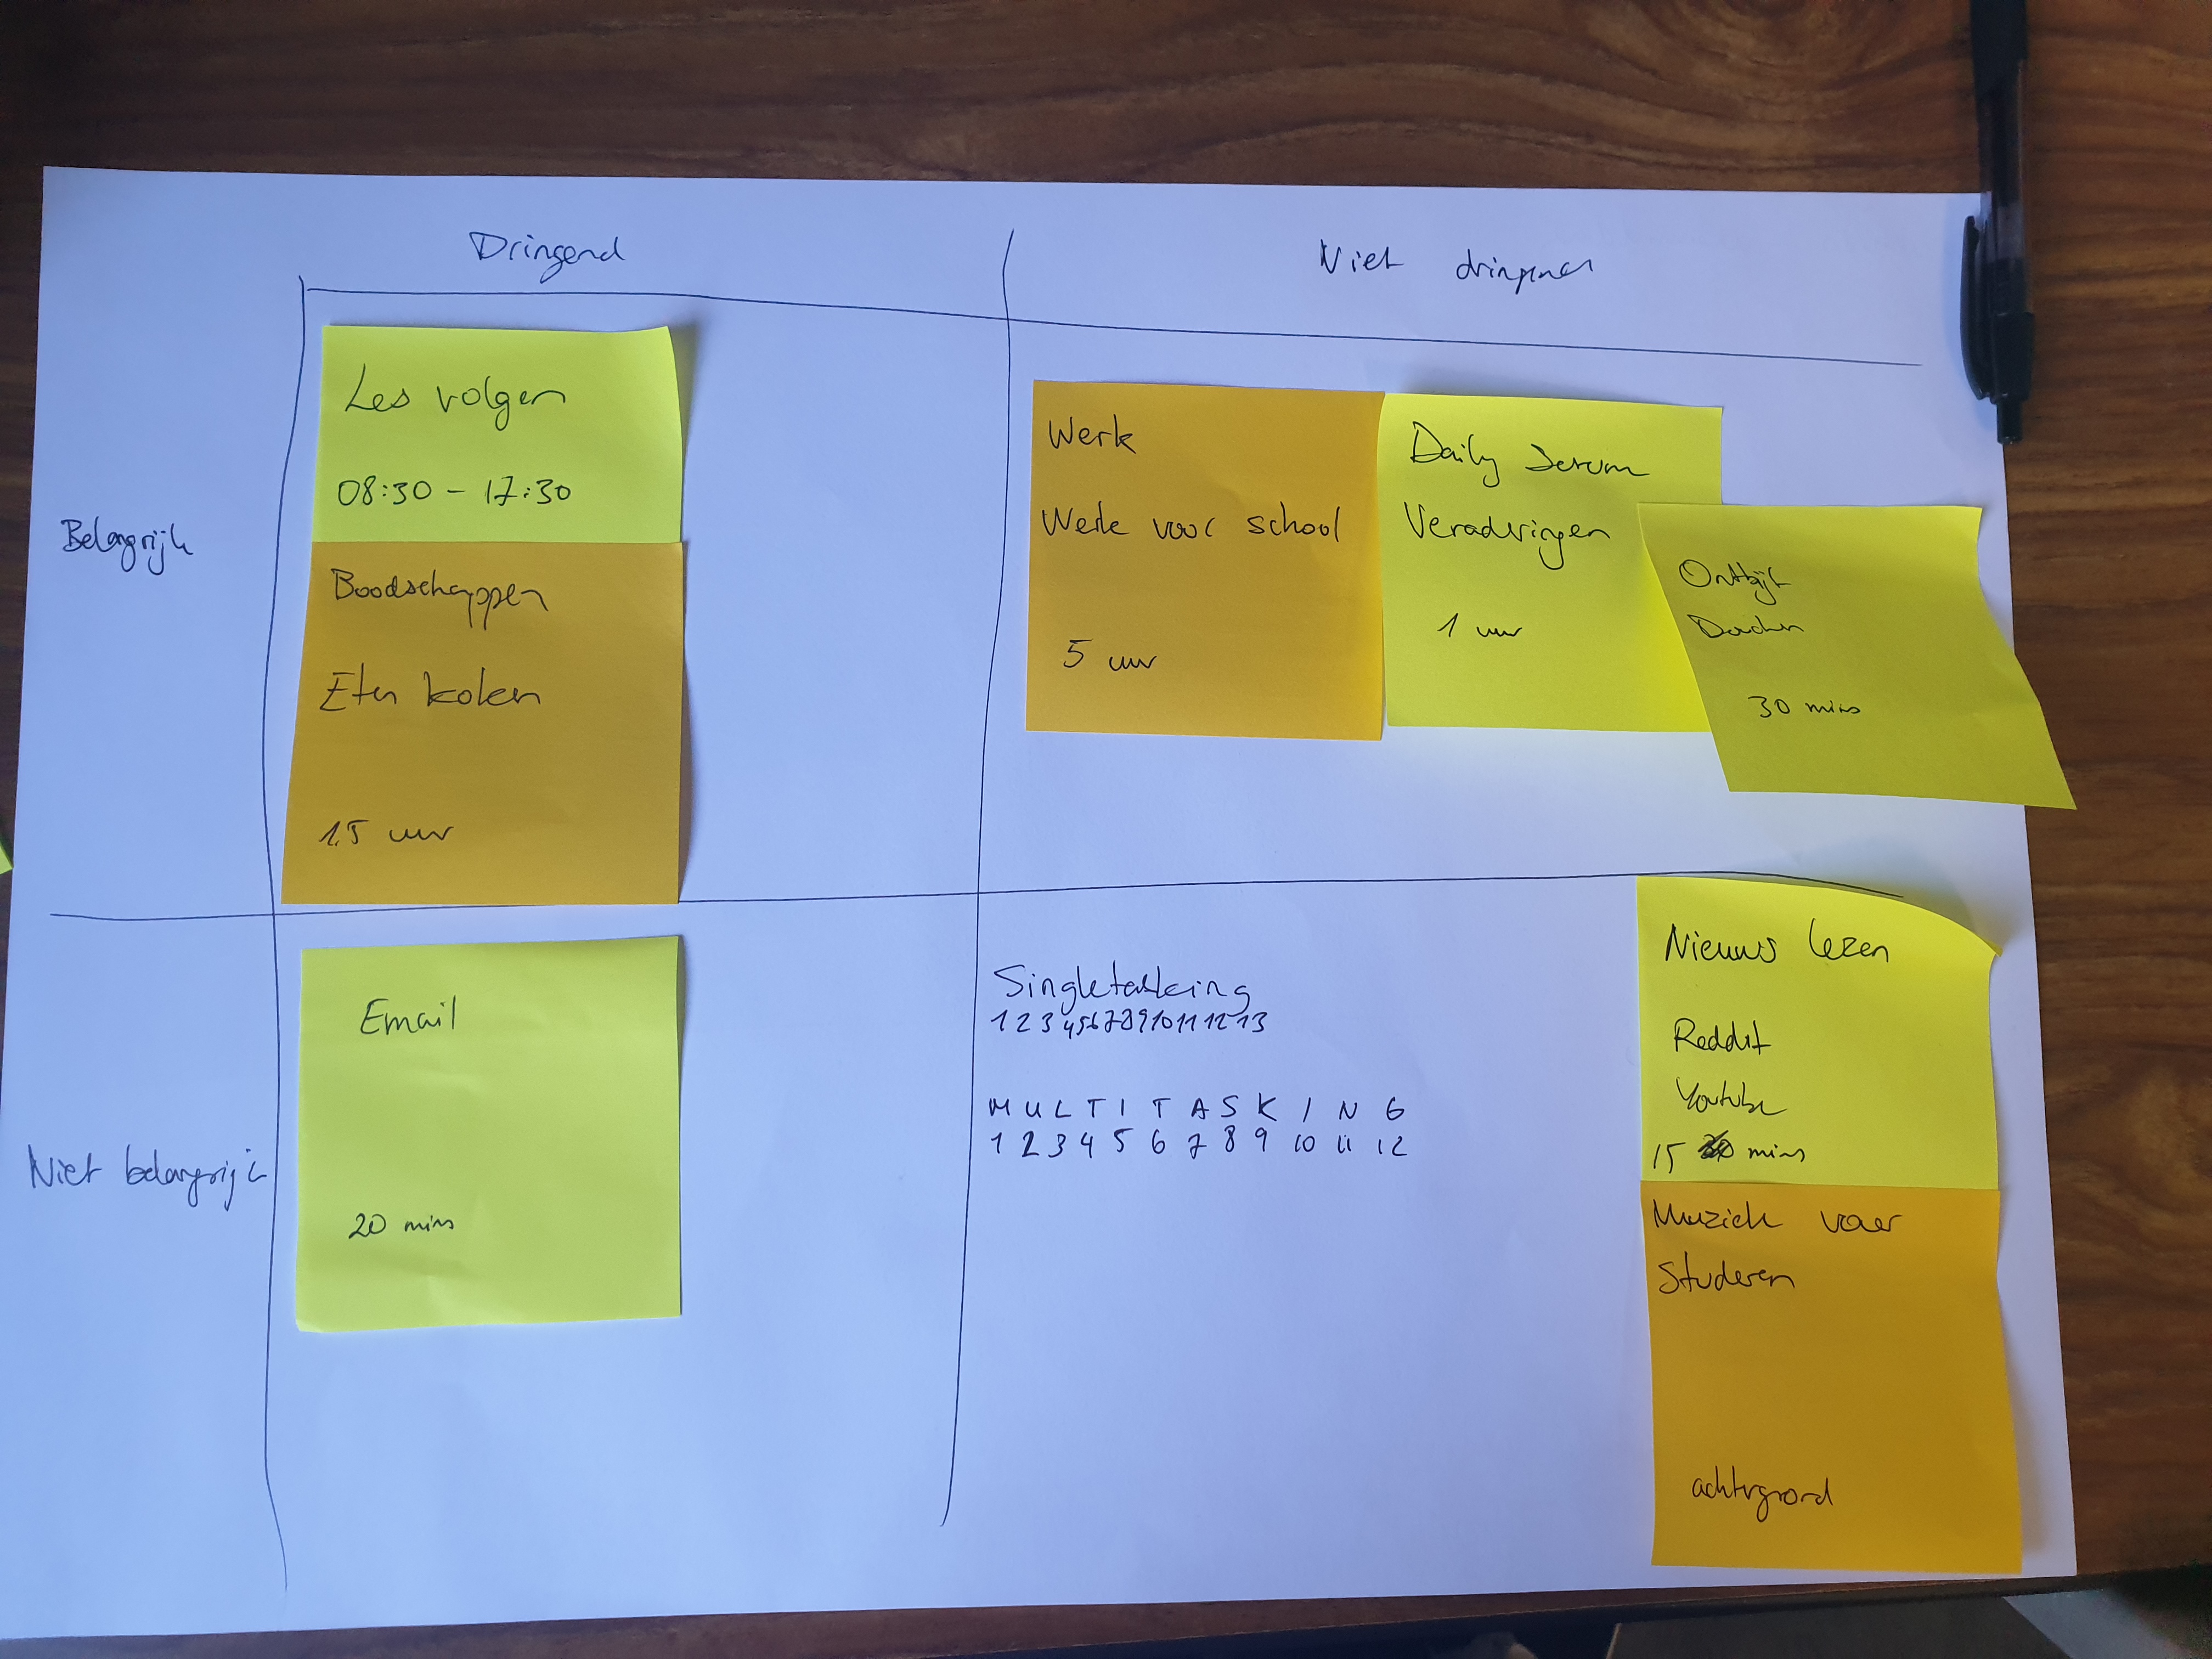 Dringend
Niet dringend
Belangrijk
Les volgen
08:30 - 17:30
Boodschappen
Eten koken
1.5 uur
Werk
Werk voor school
5 uur
Daily Scrum
Veraderingen
1 uur
Ontbijt
Douchen
30 min
Niet belangrijk
Email
20 min
Singletasking
1 2 3 4 5 6 7 8 9 10 11 12 13
M U L T I T A S K I N G
1 2 3 4 5 6 7 8 9 10 11 12
Nieuws lezen
Reddit
Youtube
15 min
Muziek voor
Studeren
achtergrond